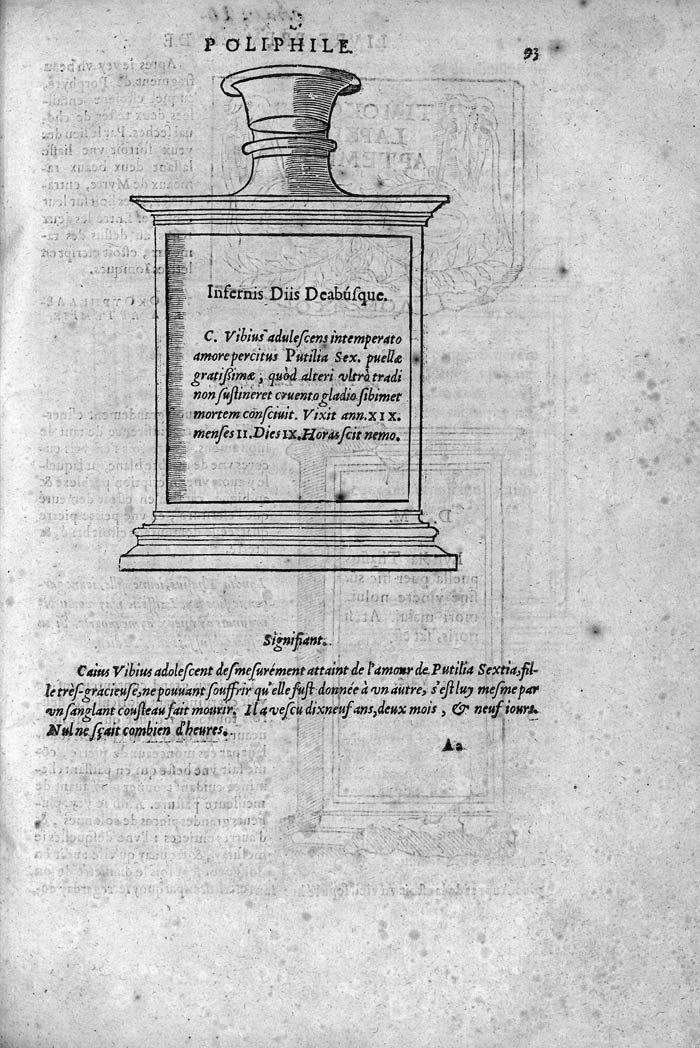 POLIPHILE.
93
Infernis Diis Deabúsque.
C. Vibius adulescens intemperato
amore percitus Putilia Sex. puellæ
gratißimæ, quòd alteri vltrò tradi
non sustineret cruento gladio sibimet
mortem consciuit. Vixit ann. XIX.
menses II. Dies IX. Horas scit nemo.
Signifiant.
Caius Vibius adolescent desmesurément attaint de l'amour de Putilia Sextia, fil-
le très-gracieuse, ne pouuant souffrir qu'elle fust donnée à vn autre, s'est luy mesme par
vn sanglant cousteau fait mourir. Il a vescu dixneuf ans, deux mois, & neuf iours.
Nul ne sçait combien d'heures.
Aa